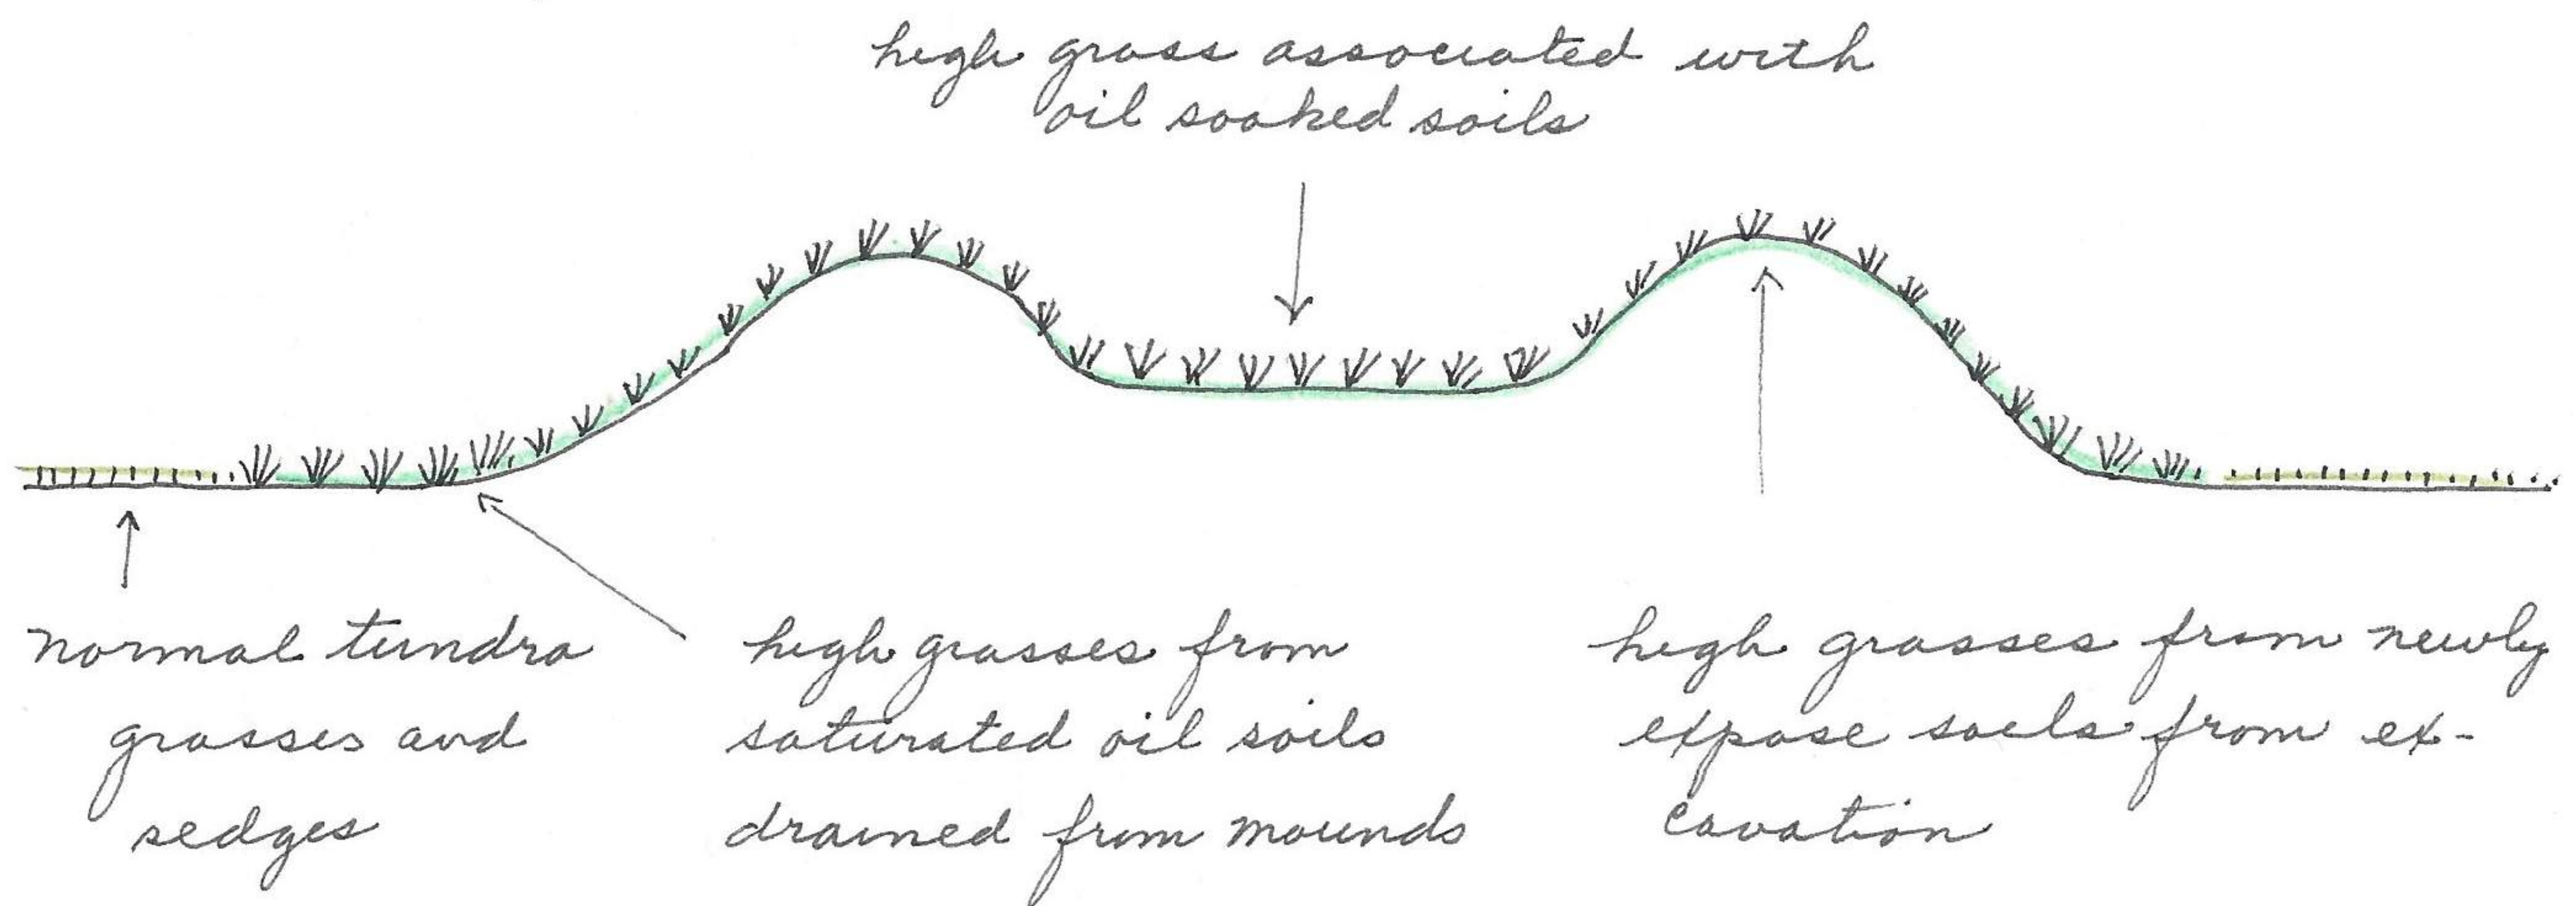 high grass associated with
oil soaked soils
normal tundra
grasses and
sedges
high grasses from
saturated oil soils
drained from mounds
high grasses from newly
expose soils from ex-
cavation